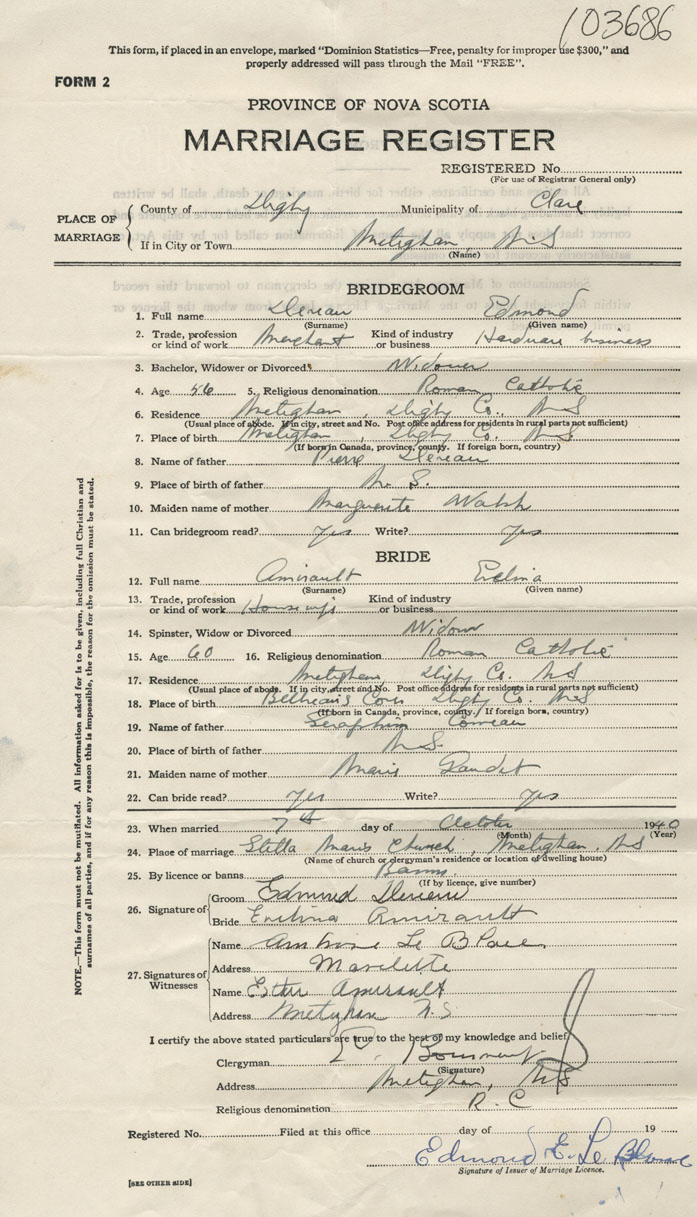 103686
This form, if placed in an envelope, marked "Dominion Statistics—Free, penalty for improper use $300," and
properly addressed will pass through the Mail "FREE".
FORM 2
PROVINCE OF NOVA SCOTIA
MARRIAGE REGISTER
REGISTERED No.
(For use of Registrar General only)
PLACE OF MARRIAGE
County of Digby Municipality of Clare
If in City or Town Meteghan, N.S
(Name)
BRIDEGROOM
1. Full name Deveau Edmond
(Surname) (Given name)
2. Trade, profession or kind of work Merchant Kind of industry or business Hardware business
3. Bachelor, Widower or Divorced Widower
4. Age 56 5. Religious denomination Roman Catholic
6. Residence Meteghan, Digby Co., N.S
(Usual place of abode. If in city, street and No. Post office address for residents in rural parts not sufficient)
7. Place of birth Meteghan, Digby Co. N.S
(If born in Canada, province, county. If foreign born, country)
8. Name of father Pierre Deveau
9. Place of birth of father N. S.
10. Maiden name of mother Marguerite Walsh
11. Can bridegroom read? Yes Write? Yes
BRIDE
12. Full name Amirault Evelina
(Surname) (Given name)
13. Trade, profession or kind of work Kind of industry or business
14. Spinster, Widow or Divorced Widow
15. Age 60 16. Religious denomination Roman Catholic
17. Residence Meteghan, Digby Co. N.S
(Usual place of abode. If in city, street and No. Post office address for residents in rural parts not sufficient)
18. Place of birth Digby Co. N.S
(If born in Canada, province, county. If foreign born, country)
19. Name of father Seraphin Comeau
20. Place of birth of father N.S.
21. Maiden name of mother Marie Gaudet
22. Can bride read? Yes Write? Yes
23. When married 7th day of October 1940
(Month) (Year)
24. Place of marriage Stella Maris Church, Meteghan, N.S
(Name of church or clergyman's residence or location of dwelling house)
25. By licence or banns Banns
(If by licence, give number)
26. Signature of
Groom Edmund Deveau
Bride Evelina Amirault
27. Signatures of Witnesses
Name Ambroise Le Blanc
Address Mavilette
Name Esther Amirault
Address Meteghan N.S
I certify the above stated particulars are true to the best of my knowledge and belief
Clergyman
(Signature)
Address Meteghan, N.S
Religious denomination R.C
Registered No. Filed at this office day of 19
Edmond E. Le Blanc
Signature of Issuer of Marriage Licence.
[SEE OTHER SIDE]
NOTE.—This form must not be mutilated. All information asked for is to be given, including full Christian and
surnames of all parties, and if for any reason this is impossible, the reason for the omission must be stated.